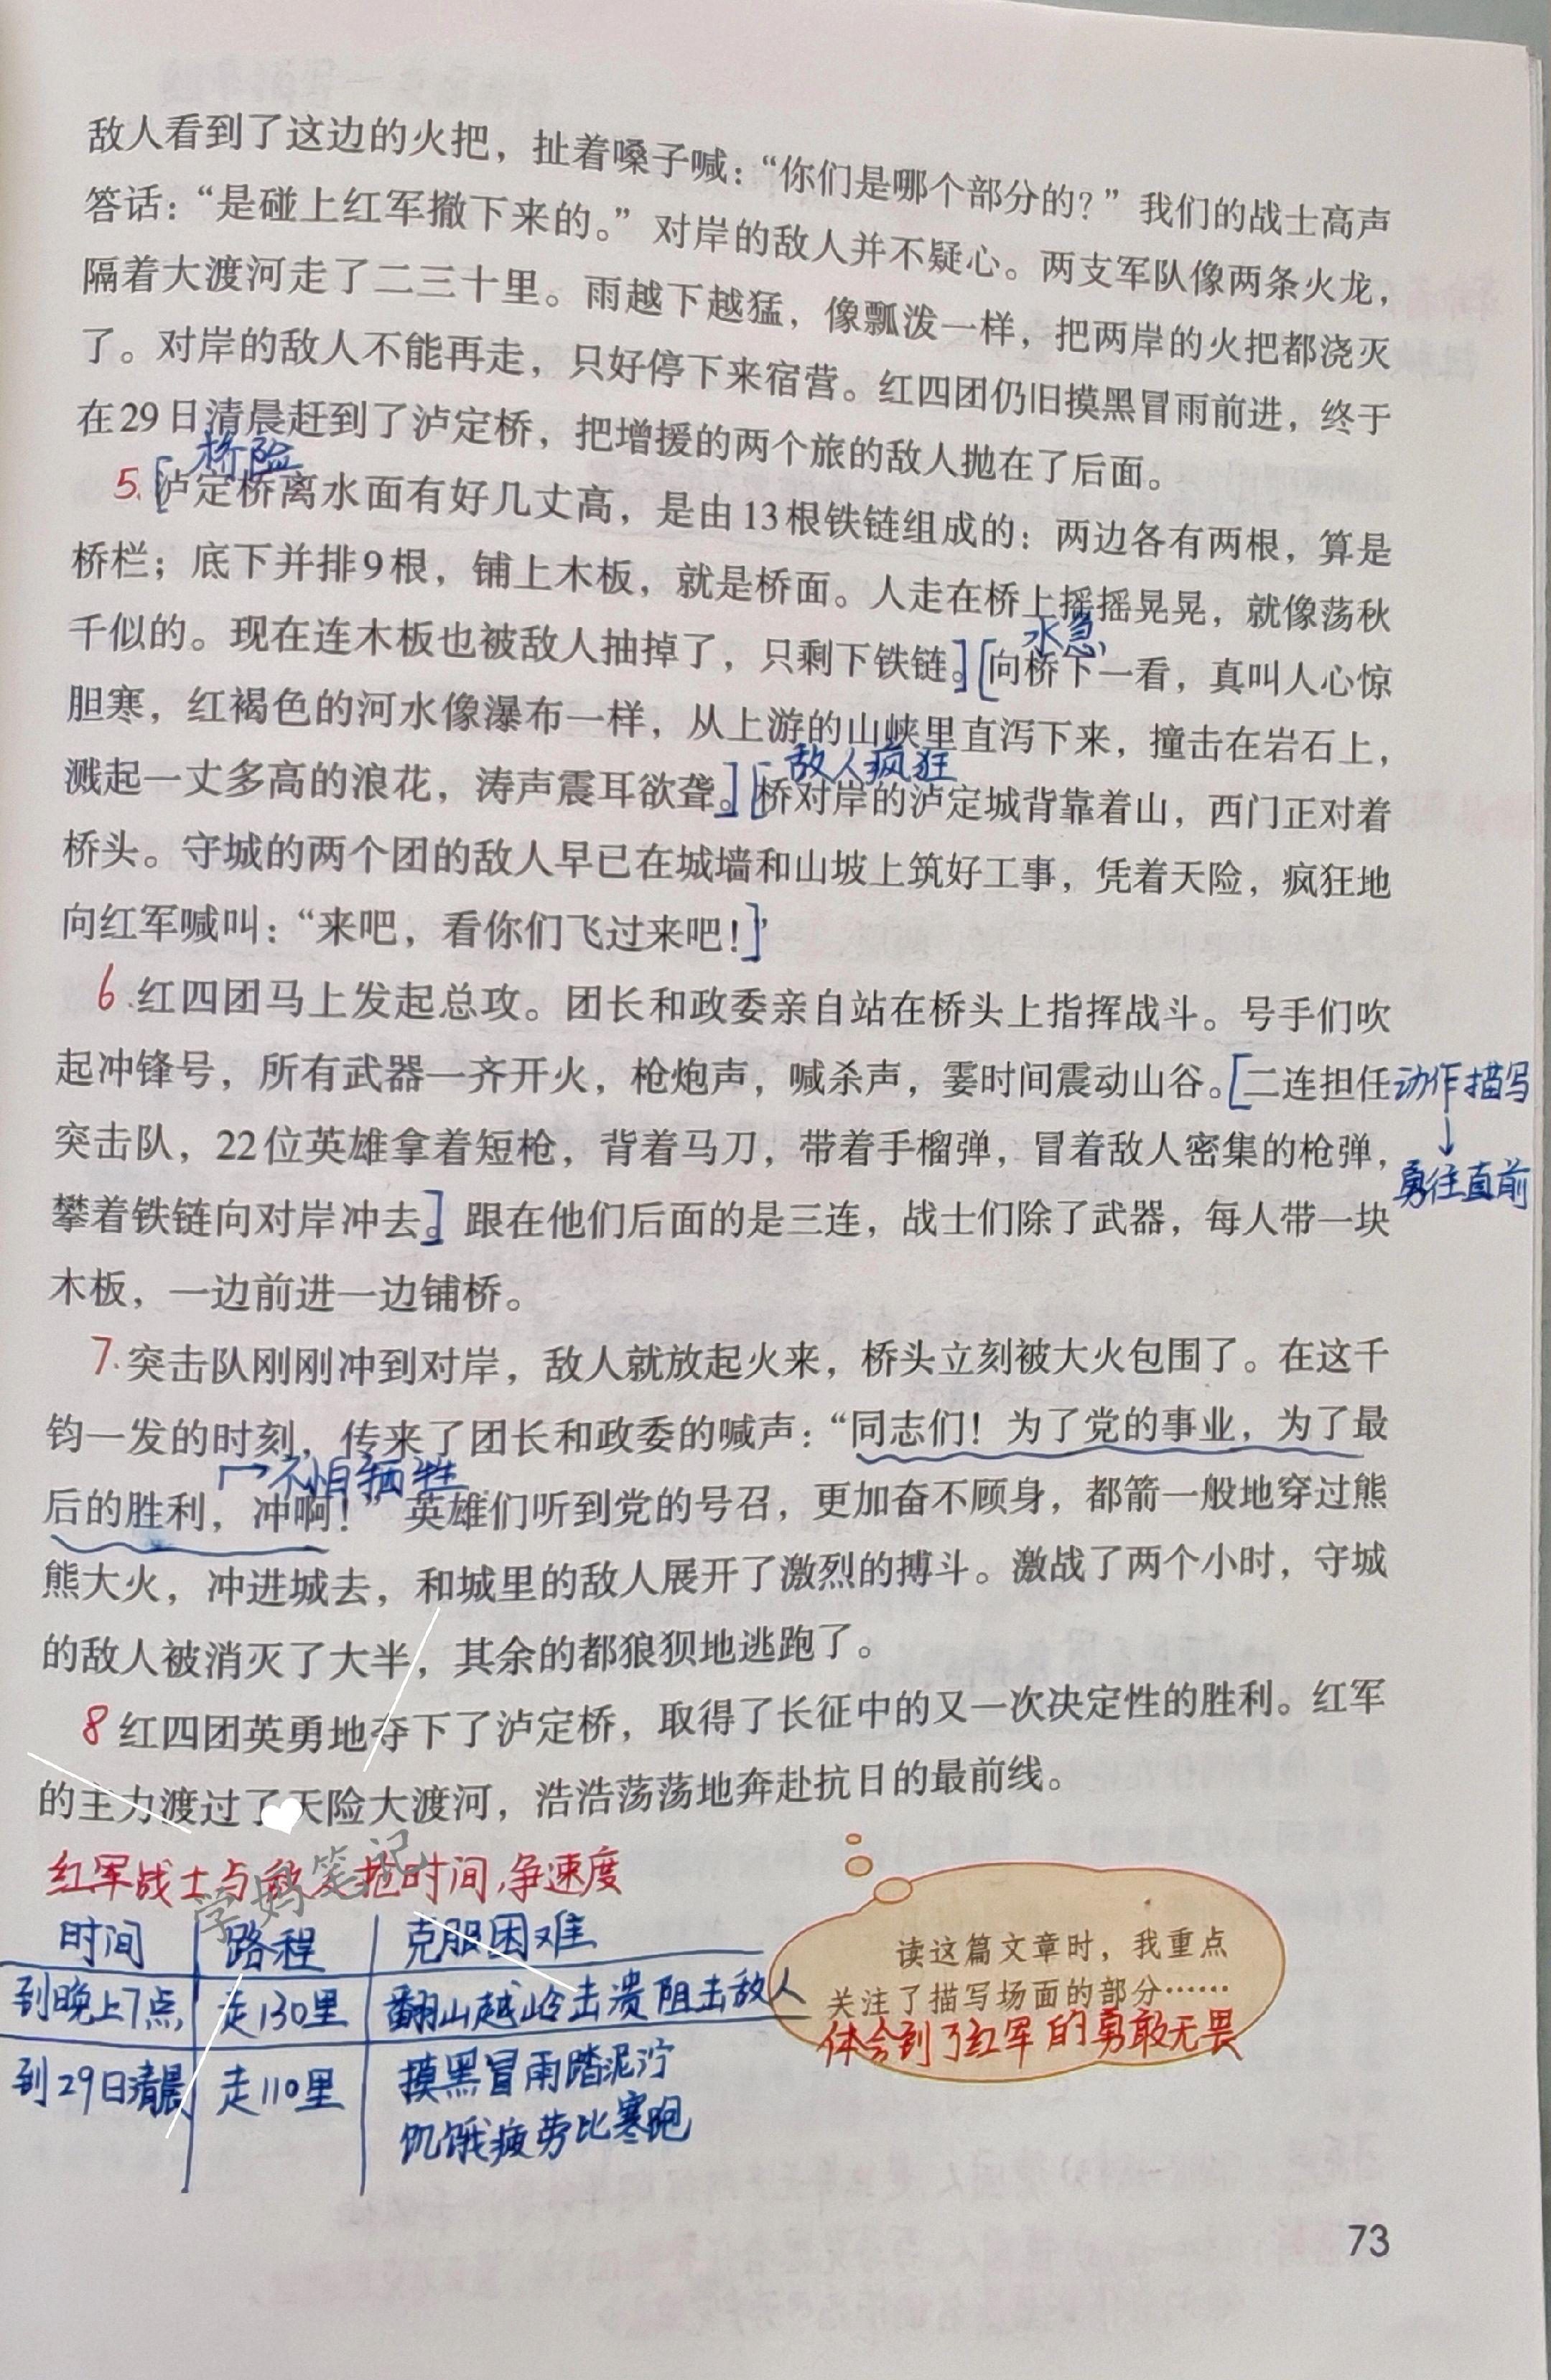 敌人看到了这边的火把，扯着嗓子喊：“你们是哪个部分的？”我们的战士高声
答话：“是碰上红军撤下来的。”对岸的敌人并不疑心。两支军队像两条火龙，
隔着大渡河走了二三十里。雨越下越猛，像瓢泼一样，把两岸的火把都浇灭
了。对岸的敌人不能再走，只好停下来宿营。红四团仍旧摸黑冒雨前进，终于
在29日清晨赶到了泸定桥，把增援的两个旅的敌人抛在了后面。
桥险
5.[泸定桥离水面有好几丈高，是由13根铁链组成的：两边各有两根，算是
桥栏；底下并排9根，铺上木板，就是桥面。人走在桥上摇摇晃晃，就像荡秋
水急
千似的。现在连木板也被敌人抽掉了，只剩下铁链。][向桥下一看，真叫人心惊
胆寒，红褐色的河水像瀑布一样，从上游的山峡里直泻下来，撞击在岩石上，
敌人疯狂
溅起一丈多高的浪花，涛声震耳欲聋。][桥对岸的泸定城背靠着山，西门正对着
桥头。守城的两个团的敌人早已在城墙和山坡上筑好工事，凭着天险，疯狂地
向红军喊叫：“来吧，看你们飞过来吧！]”
6.红四团马上发起总攻。团长和政委亲自站在桥头上指挥战斗。号手们吹
起冲锋号，所有武器一齐开火，枪炮声，喊杀声，霎时间震动山谷。[二连担任
动作描写
↓
勇往直前
突击队，22位英雄拿着短枪，背着马刀，带着手榴弹，冒着敌人密集的枪弹，
攀着铁链向对岸冲去。]跟在他们后面的是三连，战士们除了武器，每人带一块
木板，一边前进一边铺桥。
7.突击队刚刚冲到对岸，敌人就放起火来，桥头立刻被大火包围了。在这千
钧一发的时刻，传来了团长和政委的喊声：“同志们！为了党的事业，为了最
→不怕牺牲
后的胜利，冲啊！”英雄们听到党的号召，更加奋不顾身，都箭一般地穿过熊
熊大火，冲进城去，和城里的敌人展开了激烈的搏斗。激战了两个小时，守城
的敌人被消灭了大半，其余的都狼狈地逃跑了。
8 红四团英勇地夺下了泸定桥，取得了长征中的又一次决定性的胜利。红军
的主力渡过了天险大渡河，浩浩荡荡地奔赴抗日的最前线。
红军战士与敌人抢时间,争速度
学妈笔记
时间 路程 克服困难
到晚上7点, 走130里 翻山越岭击溃阻击敌人
到29日清晨 走110里 摸黑冒雨踏泥泞
饥饿疲劳比寒跑
读这篇文章时，我重点
关注了描写场面的部分……
体会到了红军的勇敢无畏
73